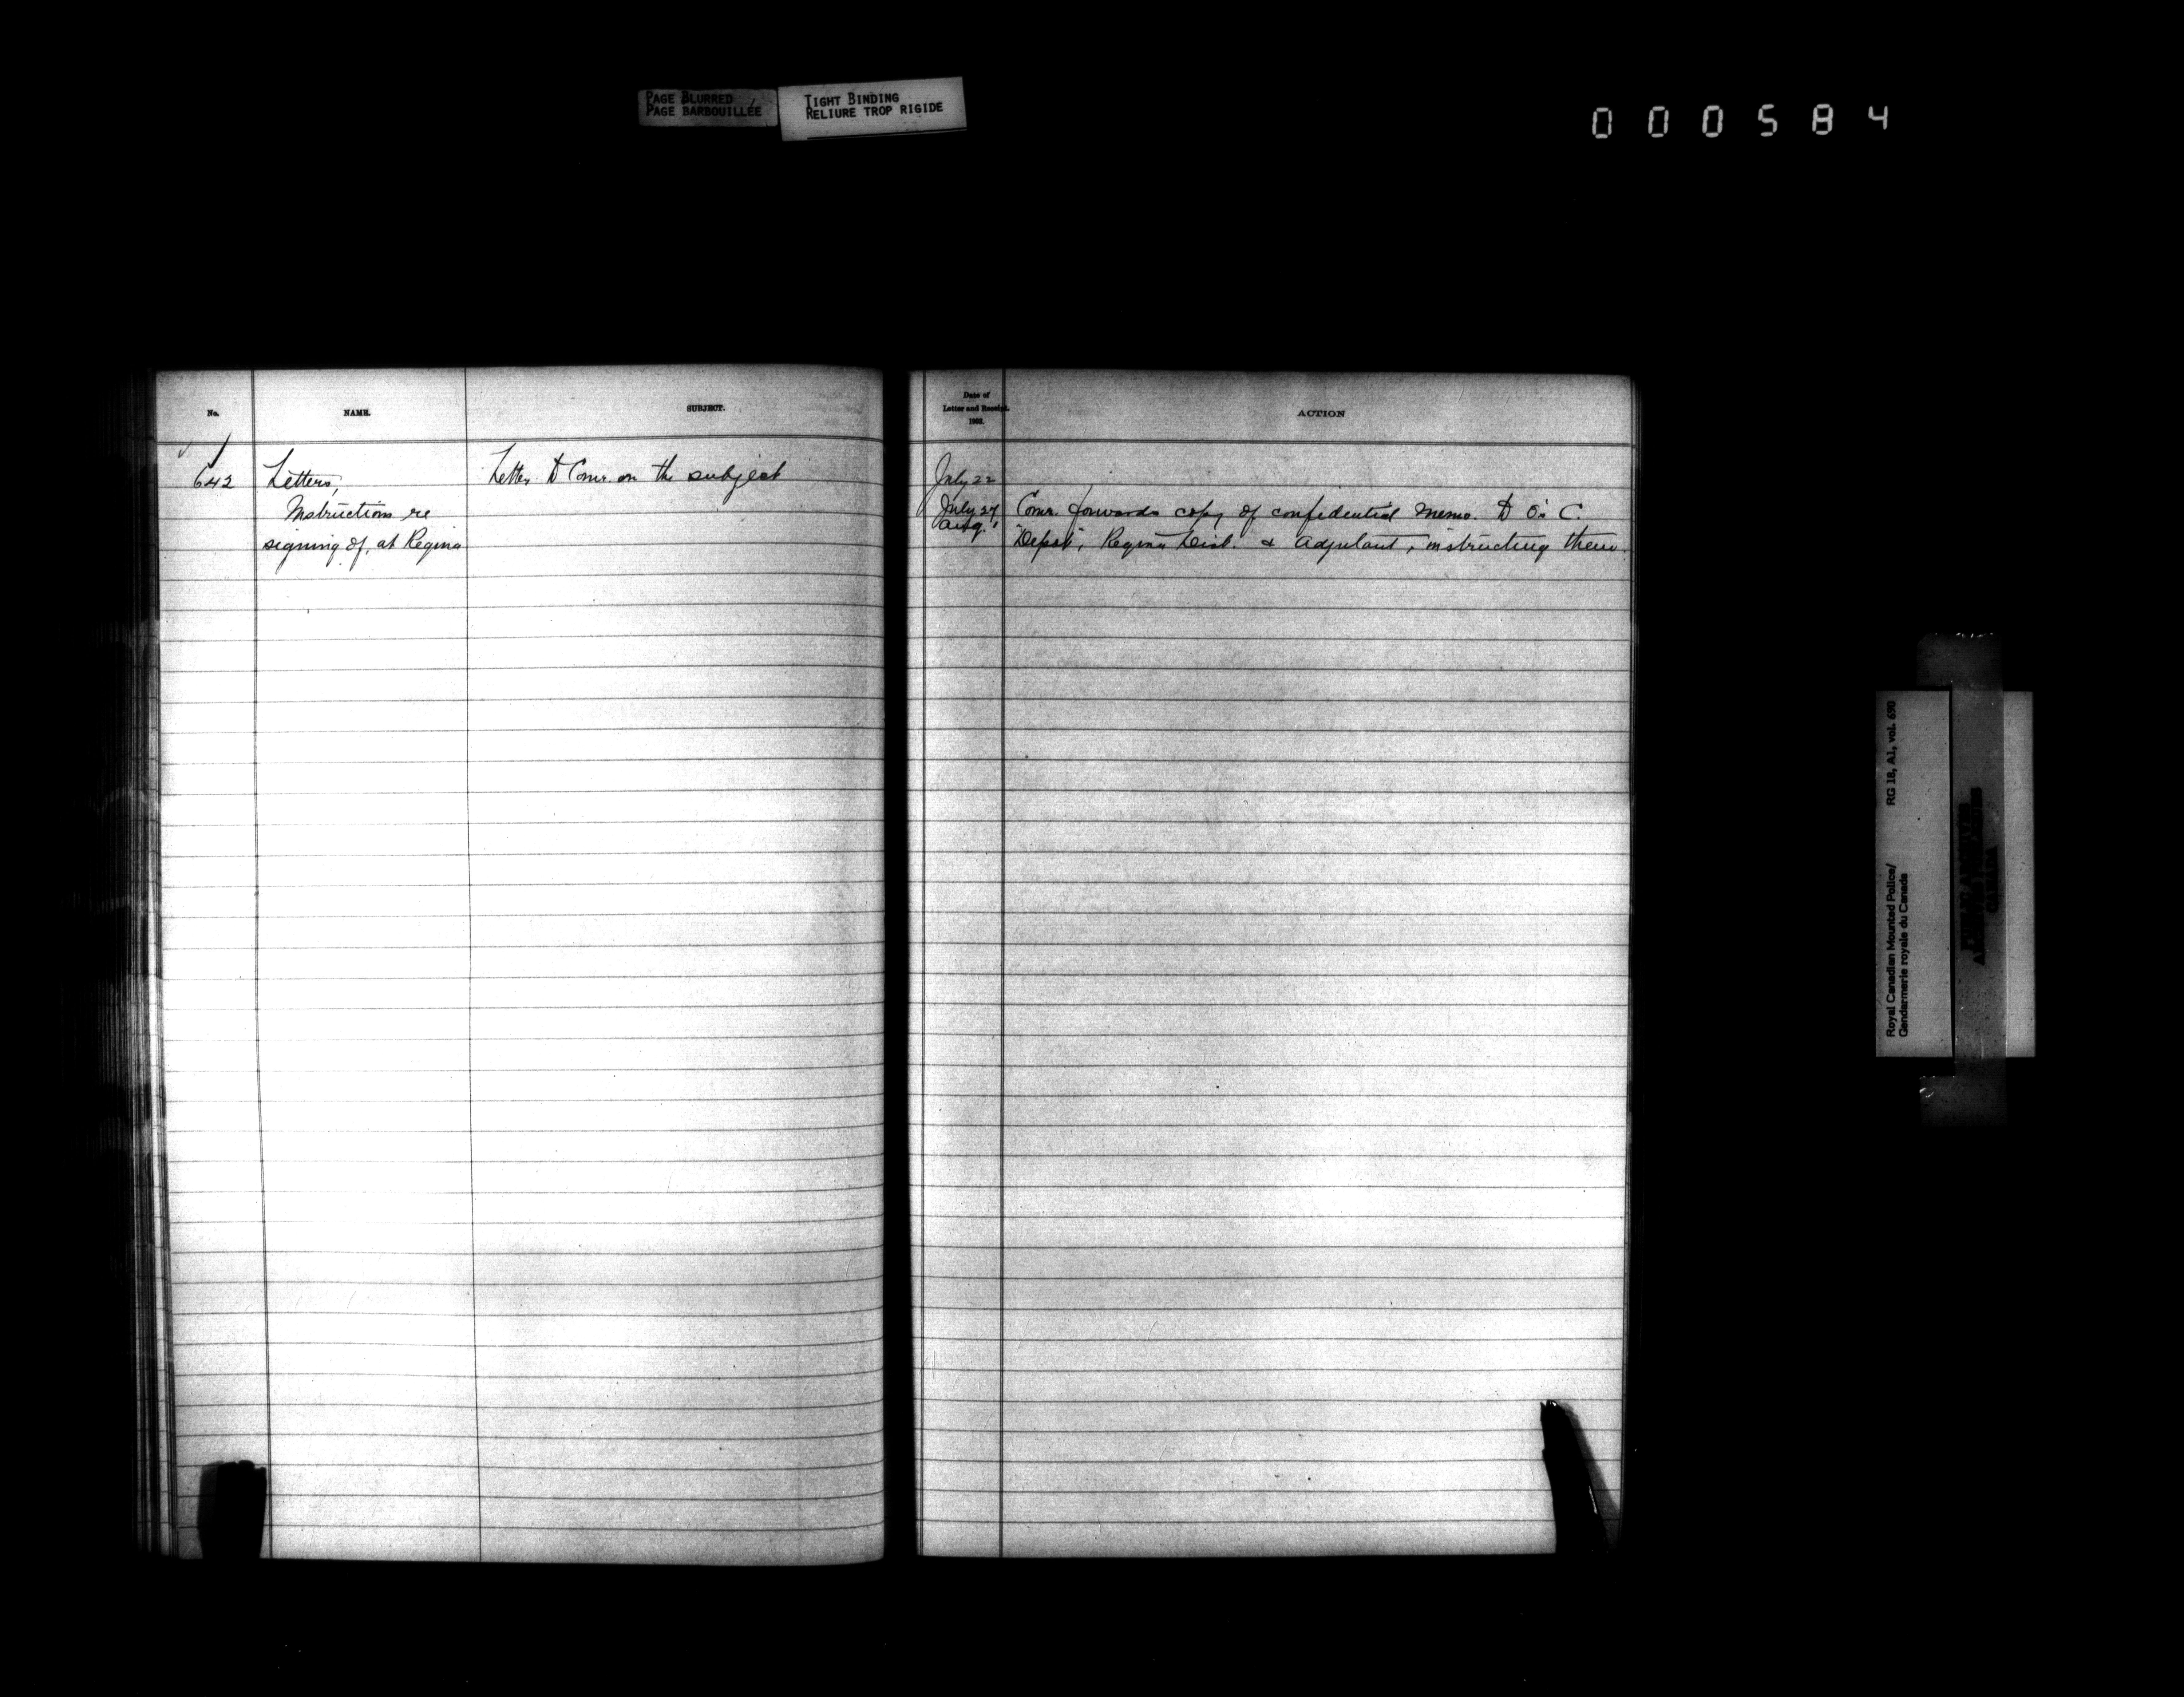 PAGE BLURRED
PAGE BARBOUILLÉE
TIGHT BINDING
RELIURE TROP RIGIDE
000584
No. NAME. SUBJECT.
642 Letters, Letter to Comr. on the subject
Instructions re
signing of, at Regina
Date of
Letter and Receipt.
1902.
ACTION
July 22
July 27 Comr. forwards copy of confidential memo. to O's C.
Aug. 1 "Depot", Regina Dist. & Adjutant, instructing them.
Royal Canadian Mounted Police/ RG 18, A1, vol. 690
Gendarmerie royale du Canada